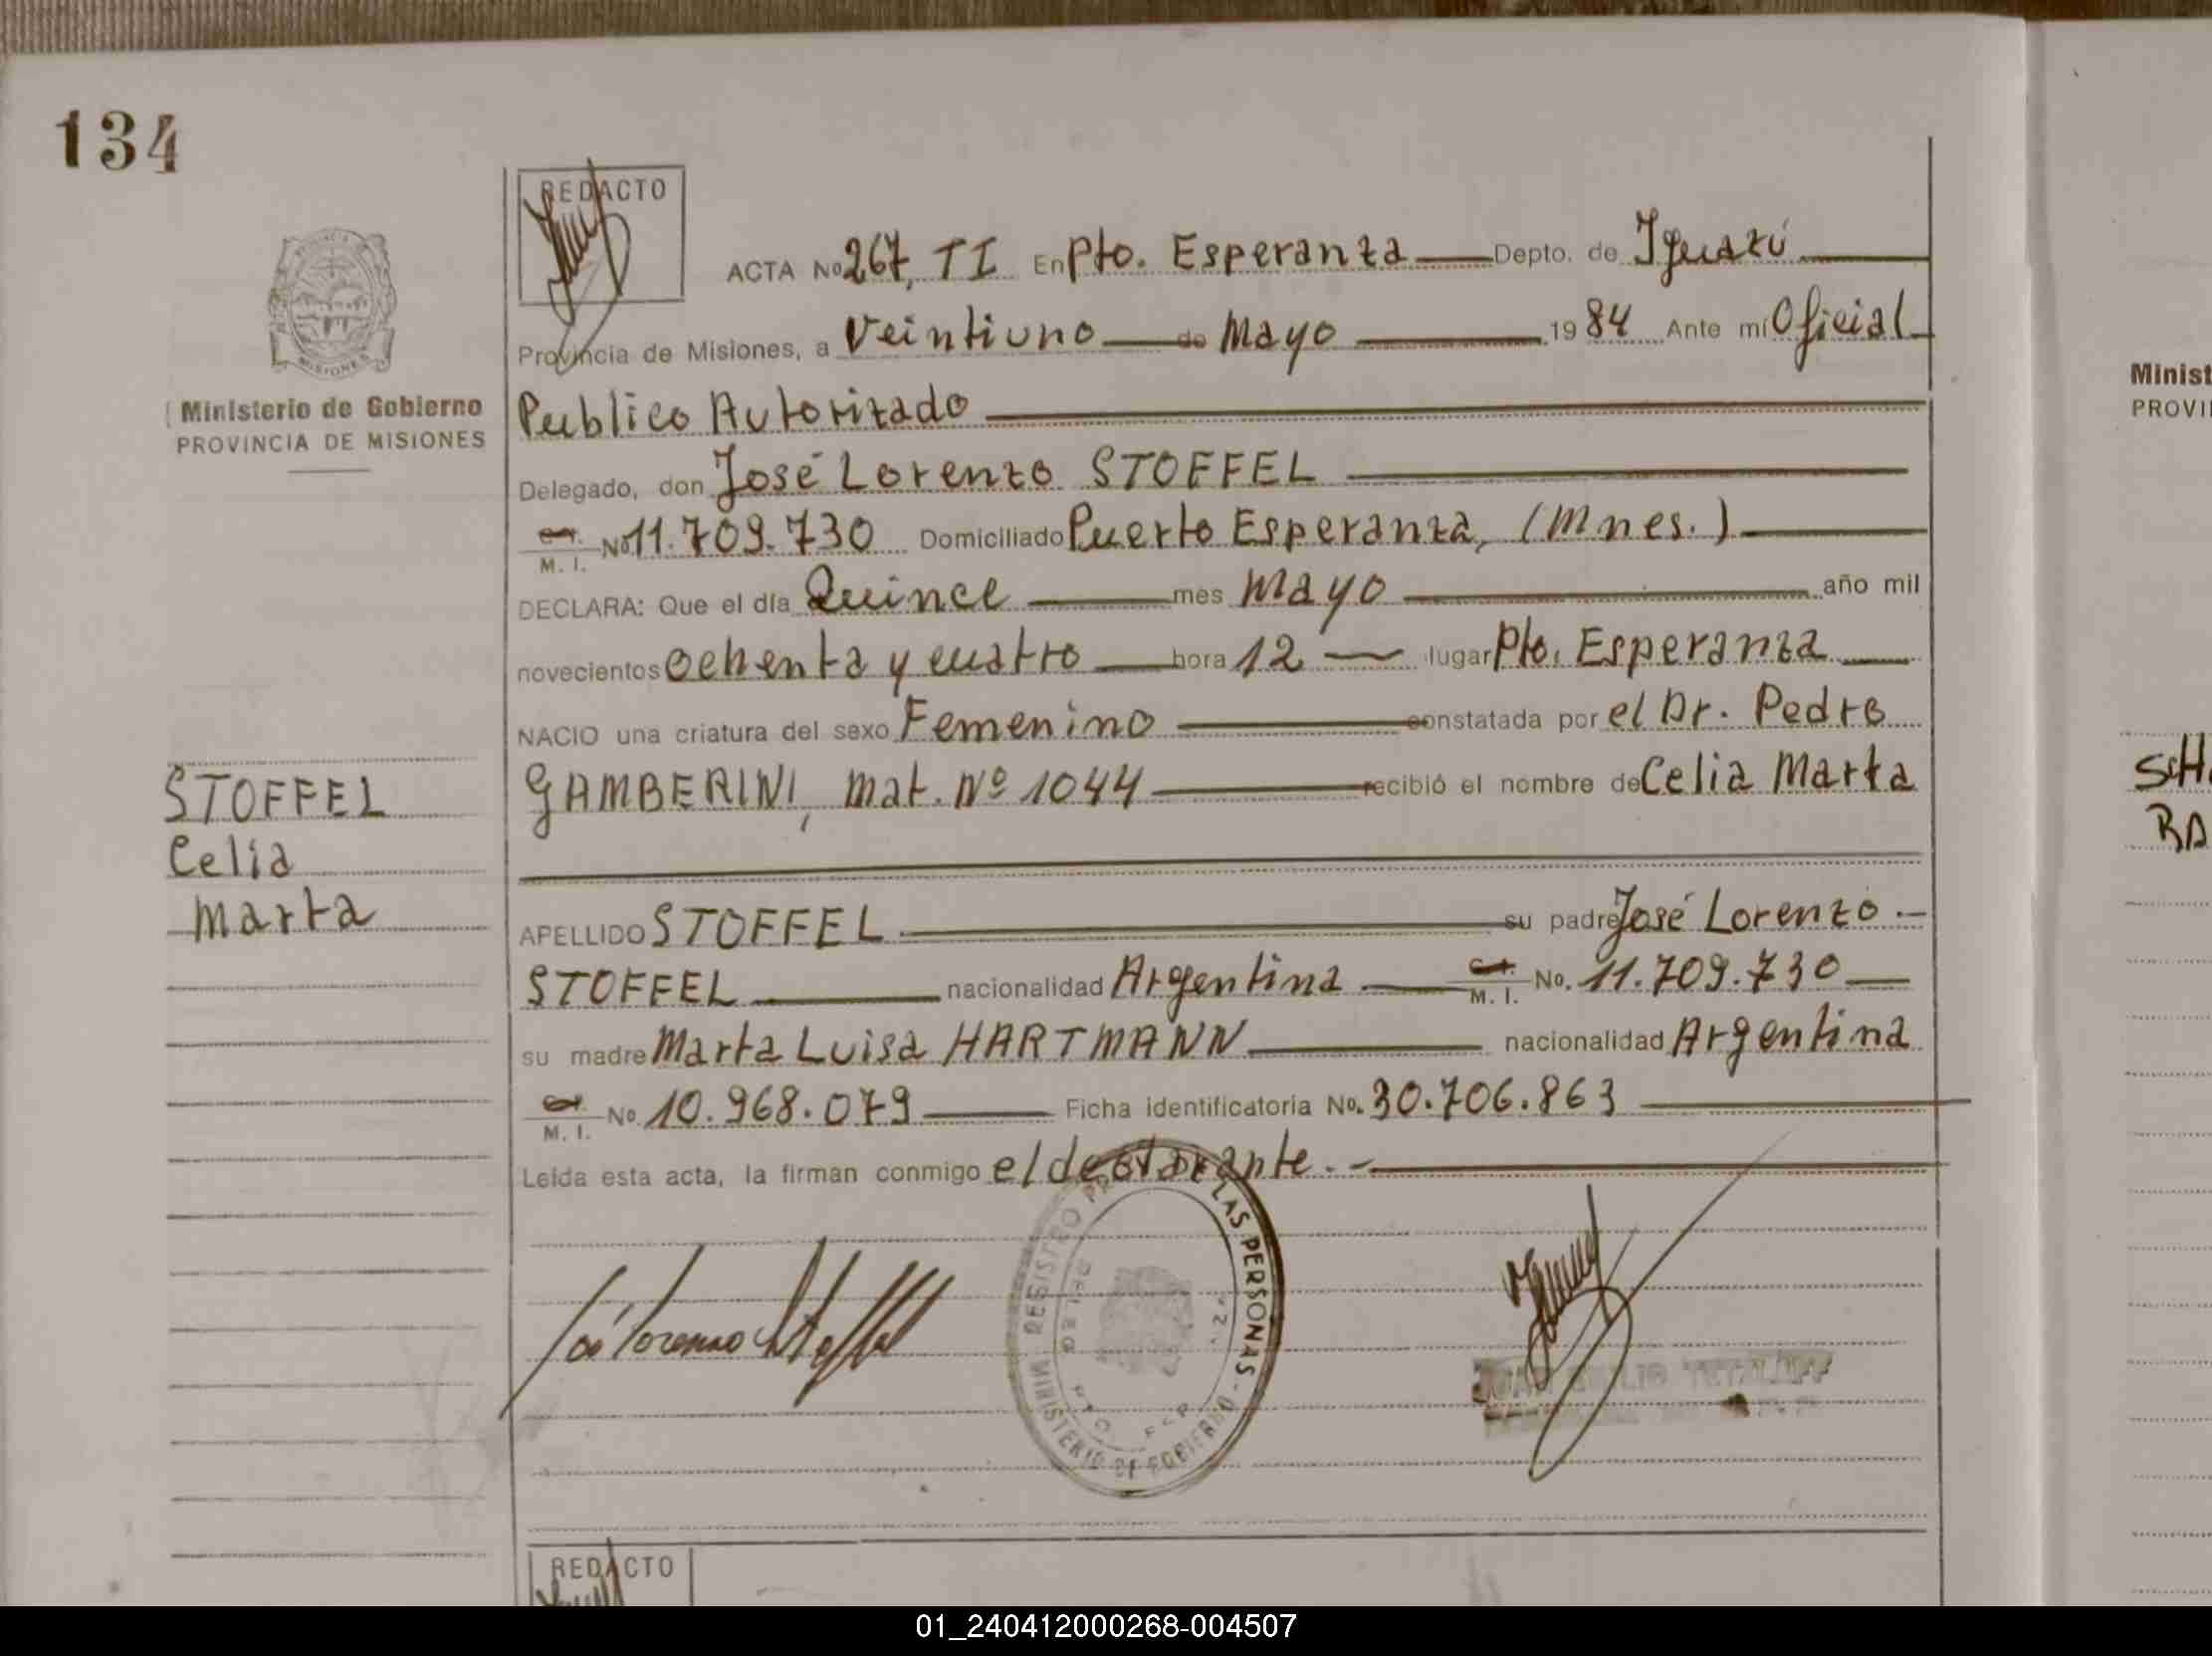 134
REDACTO
ACTA No 267, TI En Pto. Esperanza Depto. de Iguazú
Provincia de Misiones, a Veintiuno de Mayo 1984 Ante mí Oficial
Publico Autorizado
Delegado, don José Lorenzo STOFFEL
M. I. No 11.709.730 Domiciliado Puerto Esperanza, (Mnes.)
DECLARA: Que el día Quince mes Mayo año mil
novecientos ochenta y cuatro hora 12 lugar Pto. Esperanza
NACIO una criatura del sexo Femenino constatada por el Dr. Pedro
GAMBERINI, Mat. Nº 1044 recibió el nombre de Celia Marta
APELLIDO STOFFEL su padre José Lorenzo
STOFFEL nacionalidad Argentina M. I. No. 11.709.730
su madre Marta Luisa HARTMANN nacionalidad Argentina
M. I. No. 10.968.079 Ficha identificatoria No. 30.706.863
Leída esta acta, la firman conmigo el declarante.
José Lorenzo Stoffel
LAS PERSONAS - MINISTERIO DE GOBIERNO
REDACTO
PROVINCIA DE MISIONES
Ministerio de Gobierno
PROVINCIA DE MISIONES
STOFFEL
Celia
Marta
Minist
PROVI
SCH
RA
01_240412000268-004507